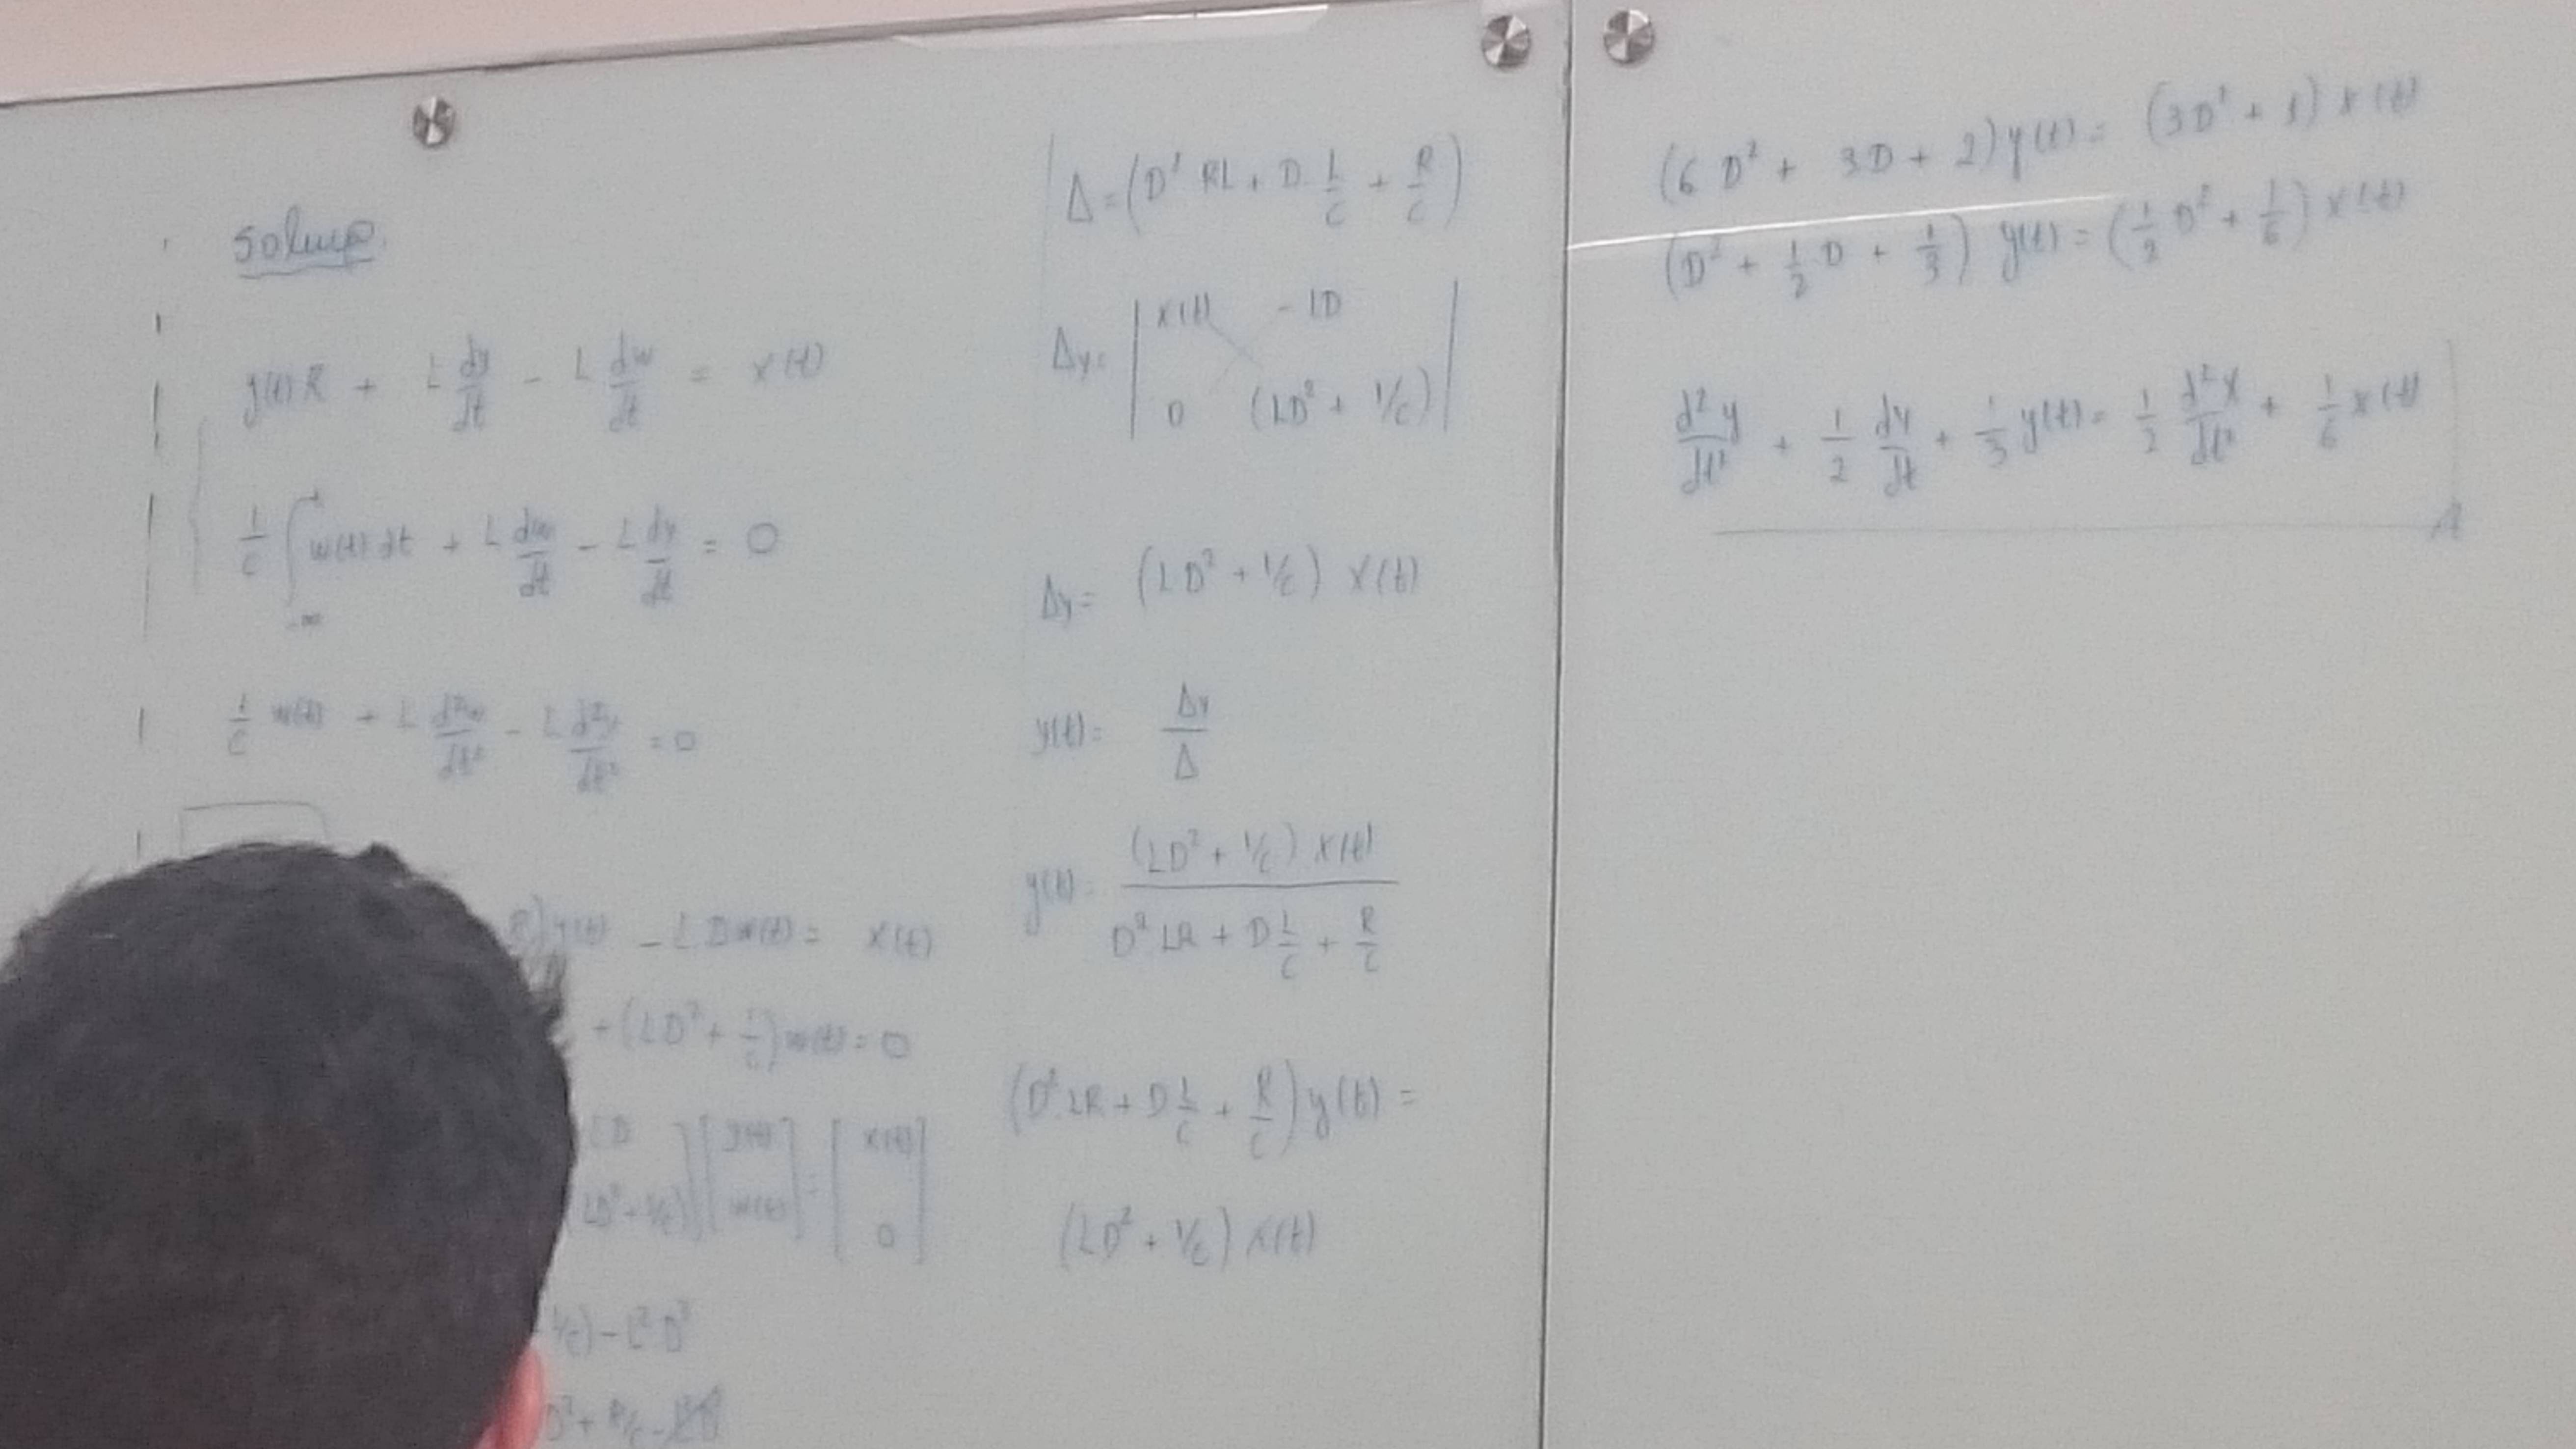 y(t)R + L dy/dt - L dw/dt = x(t)
1/C ∫_{-∞}^{t} w(t) dt + L dw/dt - L dy/dt = 0
1/C w(t) + L d²w/dt² - L d²y/dt² = 0
y(t) - L D w(t) = x(t)
+ (LD² + 1/C) w(t) = 0
LD ] [ y(t) ] = [ x(t) ]
(LD² + 1/C) ] [ w(t) ] [ 0 ]
1/C) - L² D³
D² + R/C -
Δ = (D² RL + D L/C + R/C)
Δy = | x(t) - LD |
| 0 (LD² + 1/C) |
Δy = (LD² + 1/C) x(t)
y(t) = Δy/Δ
y(t) = (LD² + 1/C) x(t)
D² LR + D L/C + R/C
(D² LR + D L/C + R/C) y(t) =
(LD² + 1/C) x(t)
(6D² + 3D + 2) y(t) = (3D² + 1) x(t)
(D² + 1/2 D + 1/3) y(t) = (1/2 D² + 1/6) x(t)
d²y/dt² + 1/2 dy/dt + 1/3 y(t) = 1/2 d²x/dt² + 1/6 x(t)